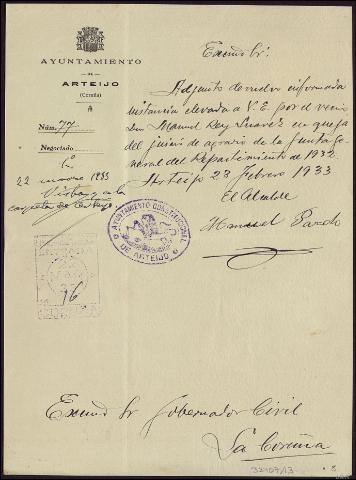 AYUNTAMIENTO
DE
ARTEIJO
(Coruña)
Núm. 77
Negociado
22 marzo 1933
Excmo Sr.
Adjunto devuelvo informada
instancia elevada a V.E. por el vecino
Don Manuel Rey Suarez en queja
del juicio de agravio de la Junta ge
neral del Repartimiento de 1932.
Arteijo 28 Febrero 1933
El Alcalde
Manuel Pardo
AYUNTAMIENTO CONSTITUCIONAL
DE ARTEIJO
16
Excmo Sr Gobernador Civil
La Coruña
32407/13